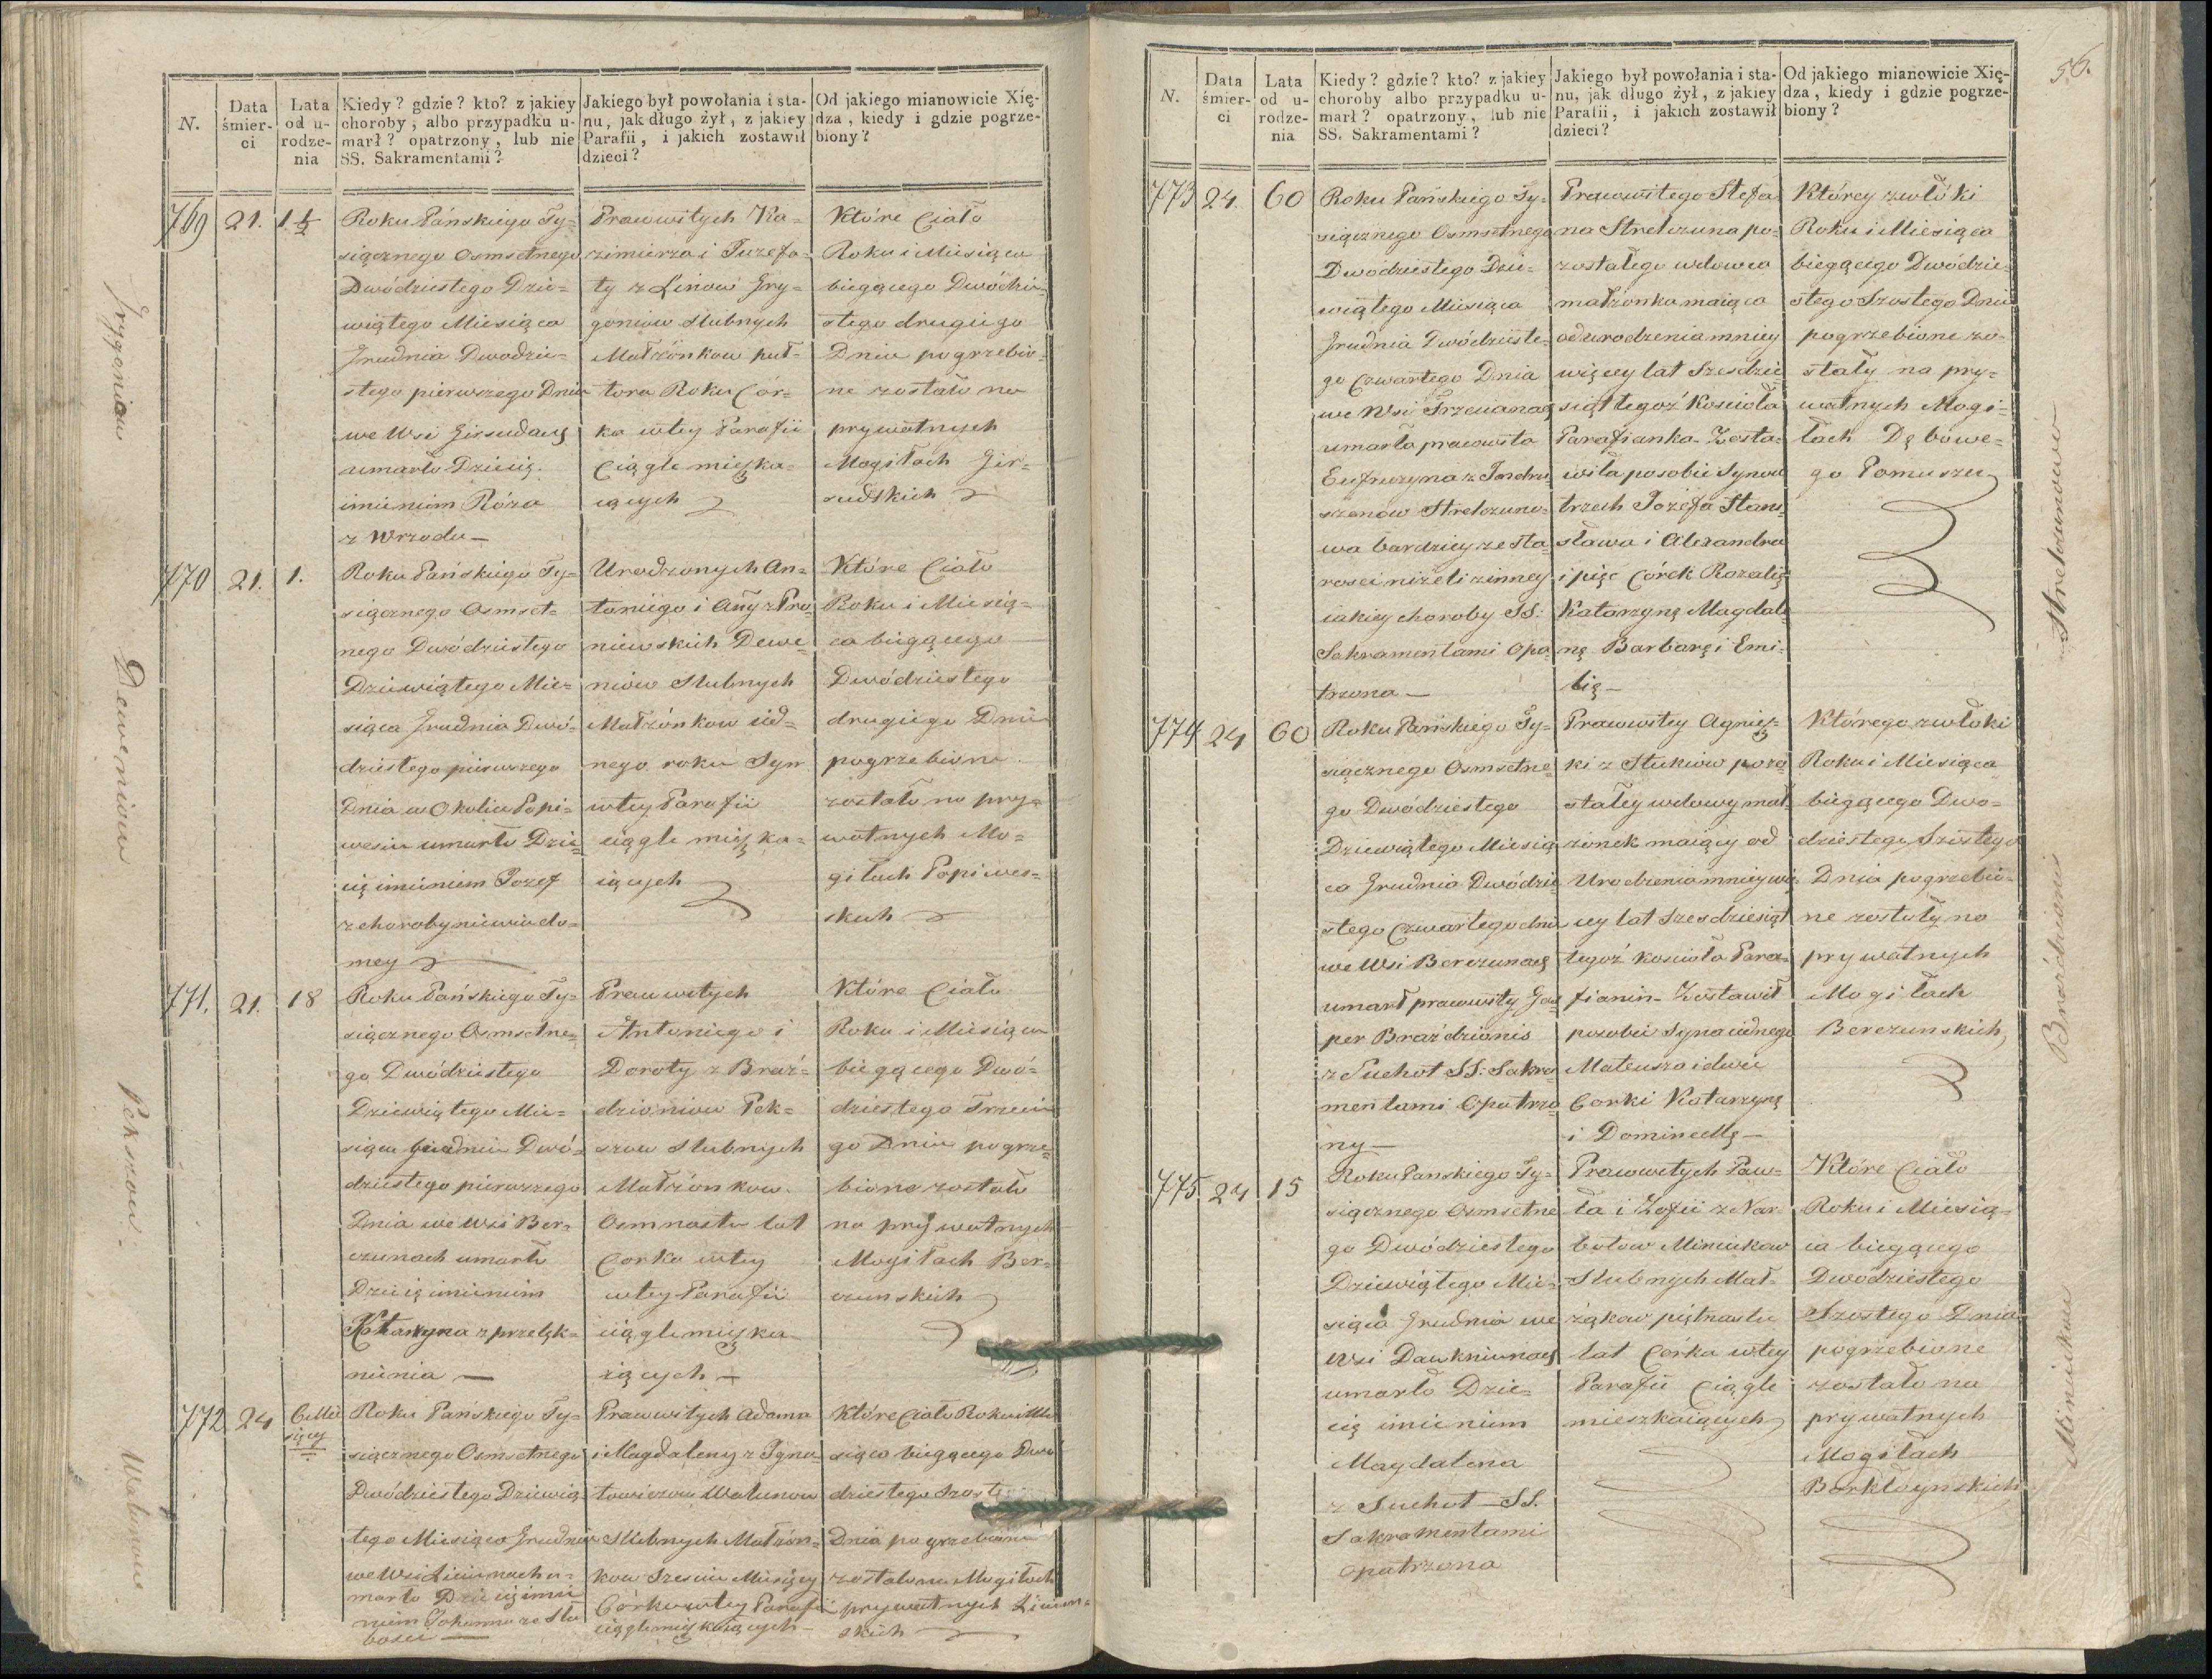 N.
Data śmier-
ci
Lata
od u-
rodze-
nia
Kiedy? gdzie? kto? z jakiey
choroby, albo przypadku u-
marł? opatrzony, lub nie
SS. Sakramentami?
Jakiego był powołania i sta-
nu, jak długo żył, z jakiey
Parafii, i jakich zostawił
dzieci?
Od jakiego mianowicie Xię-
dza, kiedy i gdzie pogrze-
biony?
769
21.
1 1/2
Roku Pańskiego Ty=
siącznego Osmsetnego
Dwódziestego Dzie=
wiątego Miesiąca
Grudnia Dwodzie=
stego pierwszego Dnia
we Wsi Girsudach
umarło Dziecię
imieniem Róża
z Wrzodu —
Prawowitych Ka=
zimierza i Juzefa=
ty z Linow Gry=
goniow Slubnych
Małżónkow puł=
tora Roku Cór=
ka wtey Parafii
Ciągle mieszka=
iących
Które Ciało
Roku i Miesiąca
biegącego Dwódzie=
stego drugiego
Dnia pogrzebio=
ne zostało na
prywatnych
Mogiłach Gir=
sudskich
Grygoniow
770
21.
1.
Roku Pańskiego Ty=
siącznego Osmset=
nego Dwódziestego
Dziewiątego Mie=
siąca Grudnia Dwó=
dziestego pierwszego
Dnia w Okolicy Popi=
wesiu umarło Dzie=
cię imieniem Jozef
z choroby niewiado=
mey
Urodzonych An=
toniego i Anny z Pro
niewskich Dewe=
niow Slubnych
Małżónkow jed=
nego roku Syn
wtey Parafii
ciągle mieszka=
iących
Które Ciało
Roku i Miesią=
ca biegącego
Dwódziestego
drugiego Dnia
pogrzebione
zostało na pry=
watnych Mo=
giłach Popiwes=
skich
Deweniow
771.
21.
18
Roku Pańskiego Ty=
siącznego Osmsetne=
go Dwódziestego
Dziewiątego Mie=
siąca Grudnia Dwó=
dziestego pierwszego
Dnia we Wsi Ber=
czunach umarło
Dziecię imieniem
Katarzyna z przelęk=
nienia —
Prawowitych
Antoniego i
Doroty z Braź=
dzioniow Pek=
szow Slubnych
Małżónkow
Osmnastu lat
Corka wtey
wtey Parafii
ciągle mieszka
iących —
Które Ciało
Roku i Miesiąca
biegącego Dwó=
dziestego Trzecie
go Dnia pogrze=
bione zostało
na prywatnych
Mogiłach Ber=
czunskich
Pekszow.
772
24
6 Mie
sięcy
Roku Pańskiego Ty=
siącznego Osmsetnego
Dwódziestego Dziewią
tego Miesiąca Grudnia
we Wsi Liciunach u=
marło Dziecię imie
niem Johanna ze Sła
bości —
Prawowitych Adama
i Magdaleny z Igna=
towiczow Walunow
Slubnych Małżón=
kow Szesciu Miesięcy
Córka wtey Parafii
ciągle mieszkaiących —
Które Ciało Roku i Mie
siąca biegącego Dwó
dziestego Szost
Dnia pogrzebione
zostało na Mogiłach
prywatnych Liciun=
skich
56.
N.
Data
śmier-
ci
Lata
od u-
rodze-
nia
Kiedy? gdzie? kto? z jakiey
choroby albo przypadku u-
marł? opatrzony, lub nie
SS. Sakramentami?
Jakiego był powołania i sta-
nu, jak długo żył, z jakiey
Parafii, i jakich zostawił
dzieci?
Od jakiego mianowicie Xię-
dza, kiedy i gdzie pogrze-
biony?
773
24.
60
Roku Pańskiego Ty=
siącznego Osmsetnego
Dwodziestego Dzie=
wiątego Miesiąca
Grudnia Dwódzieste=
go Czwartego Dnia
we Wsi Trzcianach
umarła prawowita
Eufruzyna z Jndru
szonow Strelczuno=
wa bardziey ze sta=
rosci niżeli z inney
iakiey choroby SS.
Sakramentami Opa=
trzona —
Prawowitego Stefa
na Strelczuna po=
zostałego wdowca
małżonka maiąca
od urodzenia mniey
więcey lat Szesdzie
siąt tegoż Kościoła
Parafianka Zosta=
wiła po sobie Synow
trzech Jozefa Stani=
sława i Alexandra
i pięć Córek Rozalię
Katarzynę Magdale
nę Barbarę i Emi=
lię —
Którey zwłóki
Roku i Miesiąca
biegącego Dwódzie=
stego Szostego Dnia
pogrzebione zo=
stały na pry=
watnych Mogi=
łach Dębowe=
go Pomuszu
Strelczunow
774
24
60
Roku Pańskiego Ty=
siącznego Osmsetne=
go Dwódziestego
Dziewiątego Miesią
ca Grudnia Dwódzie
stego Czwartego dnia
we Wsi Berczunach
umarł prawowity Gas
per Braździonis
z Suchot SS. Sakra=
mentami Opatrzo
ny —
Prawowitey Agniesz=
ki z Stukiow pozo
stałey wdowy mał
żonek maiący od
Urodzenia mniey wię
cey lat Szesdziesiąt
tegoż kościoła Para=
fianin — Zostawił
po sobie Syna iednego
Mateusza i dwie
Corki Katarzynę
i Dominellę —
Którego zwłoki
Roku i Miesiąca
biegącego Dwo=
dziestego Szostego
Dnia pogrzebio=
ne zostały na
prywatnych
Mogiłach
Berczunskich
775
24
15
Roku Panskiego Ty=
siącznego Osmsetne
go Dwódziestego
Dziewiątego Mie=
siąca Grudnia we
Wsi Dawkniunach
umarło Dzie=
cię imieniem
Magdalena
z Suchot — SS.
Sakramentami
opatrzona
Prawowitych Paw=
ła i Zofii z Nar=
butow Miniukow
Slubnych Mał=
żąkow piętnastu
lat Córka wtey
Parafii Ciągle
mieszkaiących
Które Ciało
Roku i Miesią=
ca biegącego
Dwodziestego
Szostego Dnia
pogrzebione
zostało na
prywatnych
Mogiłach
Barkłoynskich